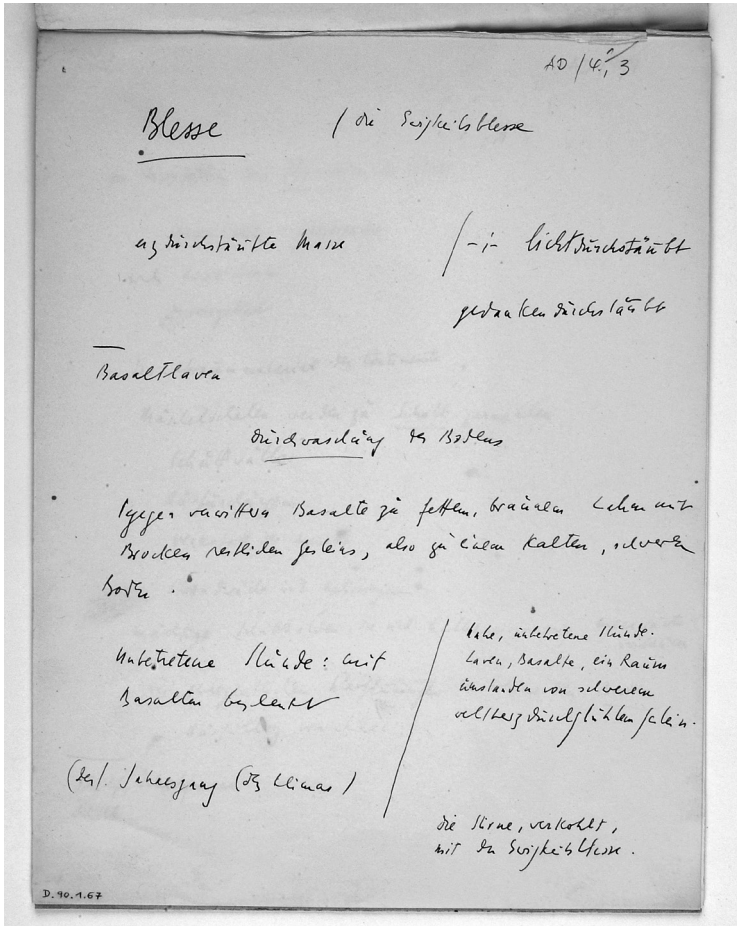 AD / 4., 3
Blesse / die Ewigkeitsblesse
erzdurchstäubte Masse /-i- lichtdurchstäubt
gedankendurchstäubt
Basaltlaven
Durchwaschung des Bodens
verwittern Basalte zu fettem, braunem Lehm mit
Brocken restlichen Gesteins, also zu einem kalten, schweren
Boden.
Unbetretene Stunde: mit
Basalten beglänzt
Nahe, unbetretene Stunde.
Laven, Basalte, ein Raum
umstanden von schwerem
weltherzdurchglühtem Gestein.
Jahresgang (des Klimas)
die Stirne, verkohlt,
mit der Ewigkeitsblesse.
D.90.1.67